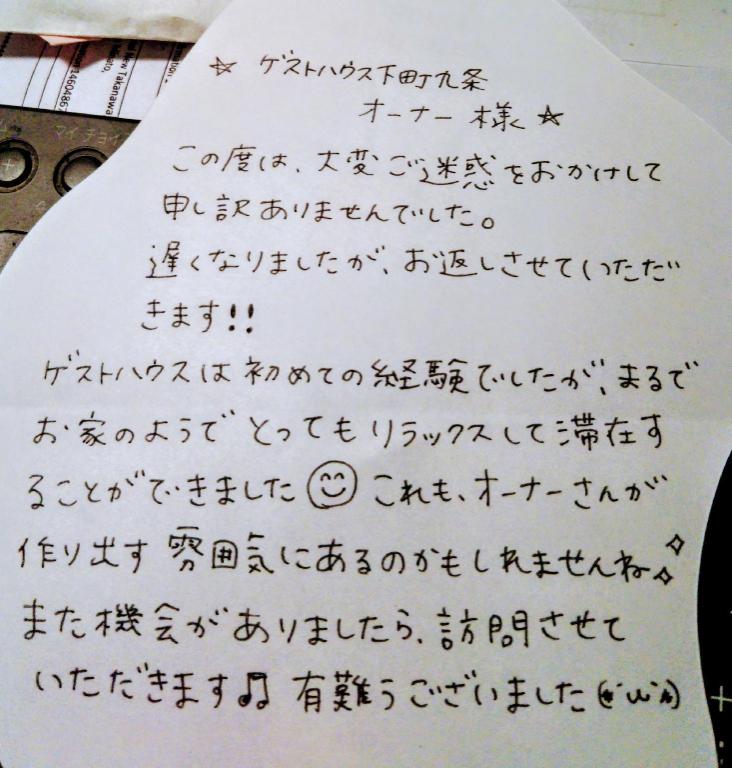 ☆ ゲストハウス下町九条
オーナー様☆
この度は、大変ご迷惑をおかけして
申し訳ありませんでした。
遅くなりましたが、お返しさせていただ
きます!!
ゲストハウスは初めての経験でしたが、まるで
お家のようでとってもリラックスして滞在す
ることができました☺ これも、オーナーさんが
作り出す雰囲気にあるのかもしれませんね✧✧
また機会がありましたら、訪問させて
いただきます♫ 有難うございました(*´ω`*)
マイチョイ
New Takanawa
Minato,
14604867